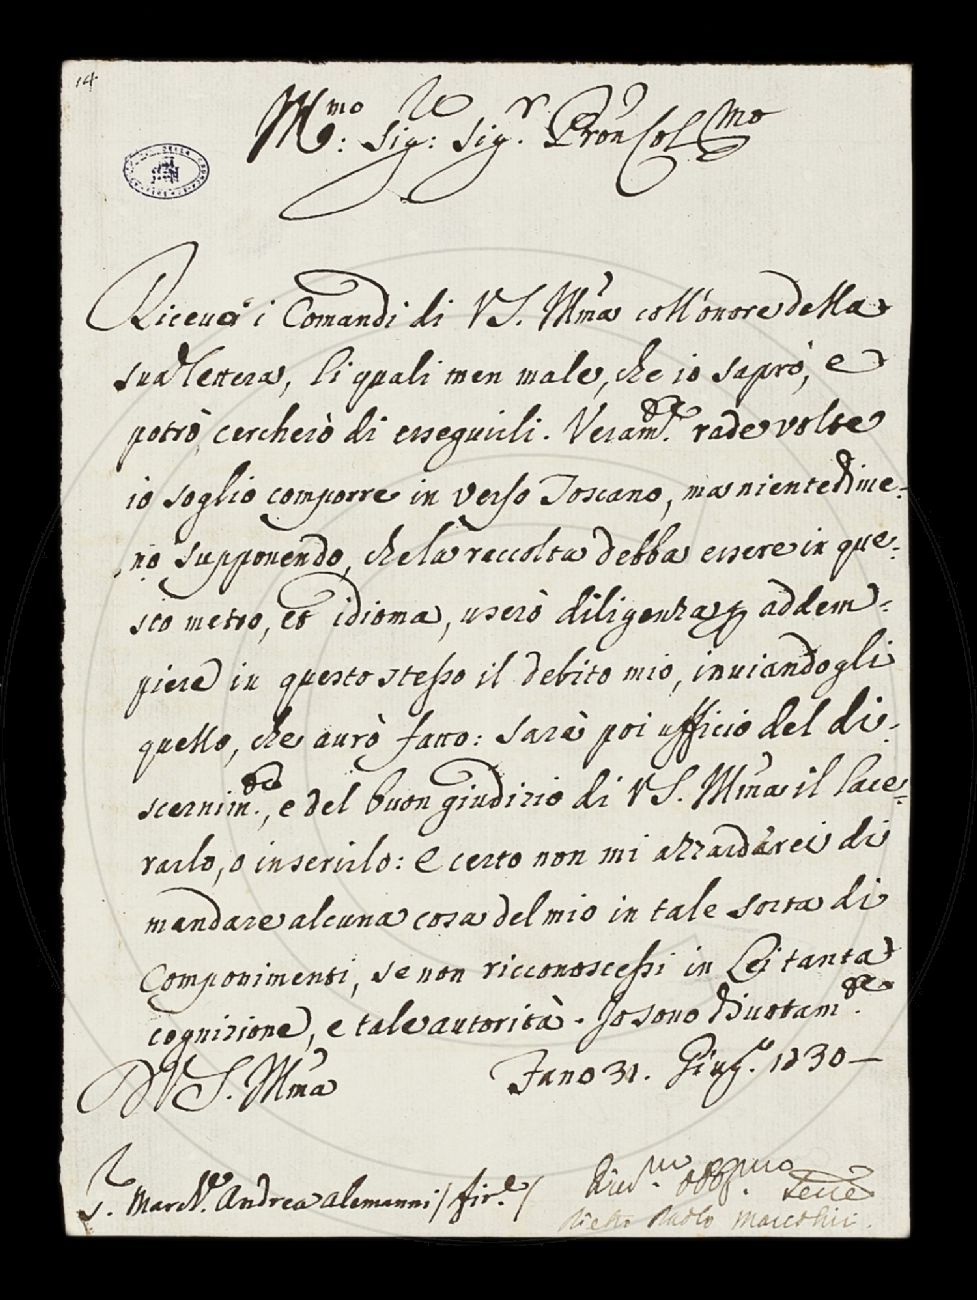 14
Ill.mo Sig.re Sig.r Pron Col.mo
Riceuei i Comandi di VS. Ill'ma coll'onore della
sua lettera, li quali men male, che io saprò, e
potrò, cercherò di esseguirli. Veram.te rade volte
io soglio comporre in verso Toscano, ma nientedime=
no supponendo, che la raccolta debba essere in que=
sto metro, et idioma, userò diligenza p addem=
piere in questo stesso il debito mio, inuiandogli
quello, che aurò fatto: Sarà poi ufficio del di=
scernim.to, e del buon giudizio di VS. Ill'ma il lace=
rarlo, o inserirlo: E certo non mi azzarderei di
mandare alcuna cosa del mio in tale sorta di
Componimenti, se non ricconoscessi in Lei tanta
cognizione, e tale autorità. Io sono diuotam.te
D VS. Ill'ma
Fano 31. Giug.o 1730
S.r March.e Andrea Alemanni / Fir.e /
Diu.mo obb.mo Serue
Pietro Paolo Marcolini.